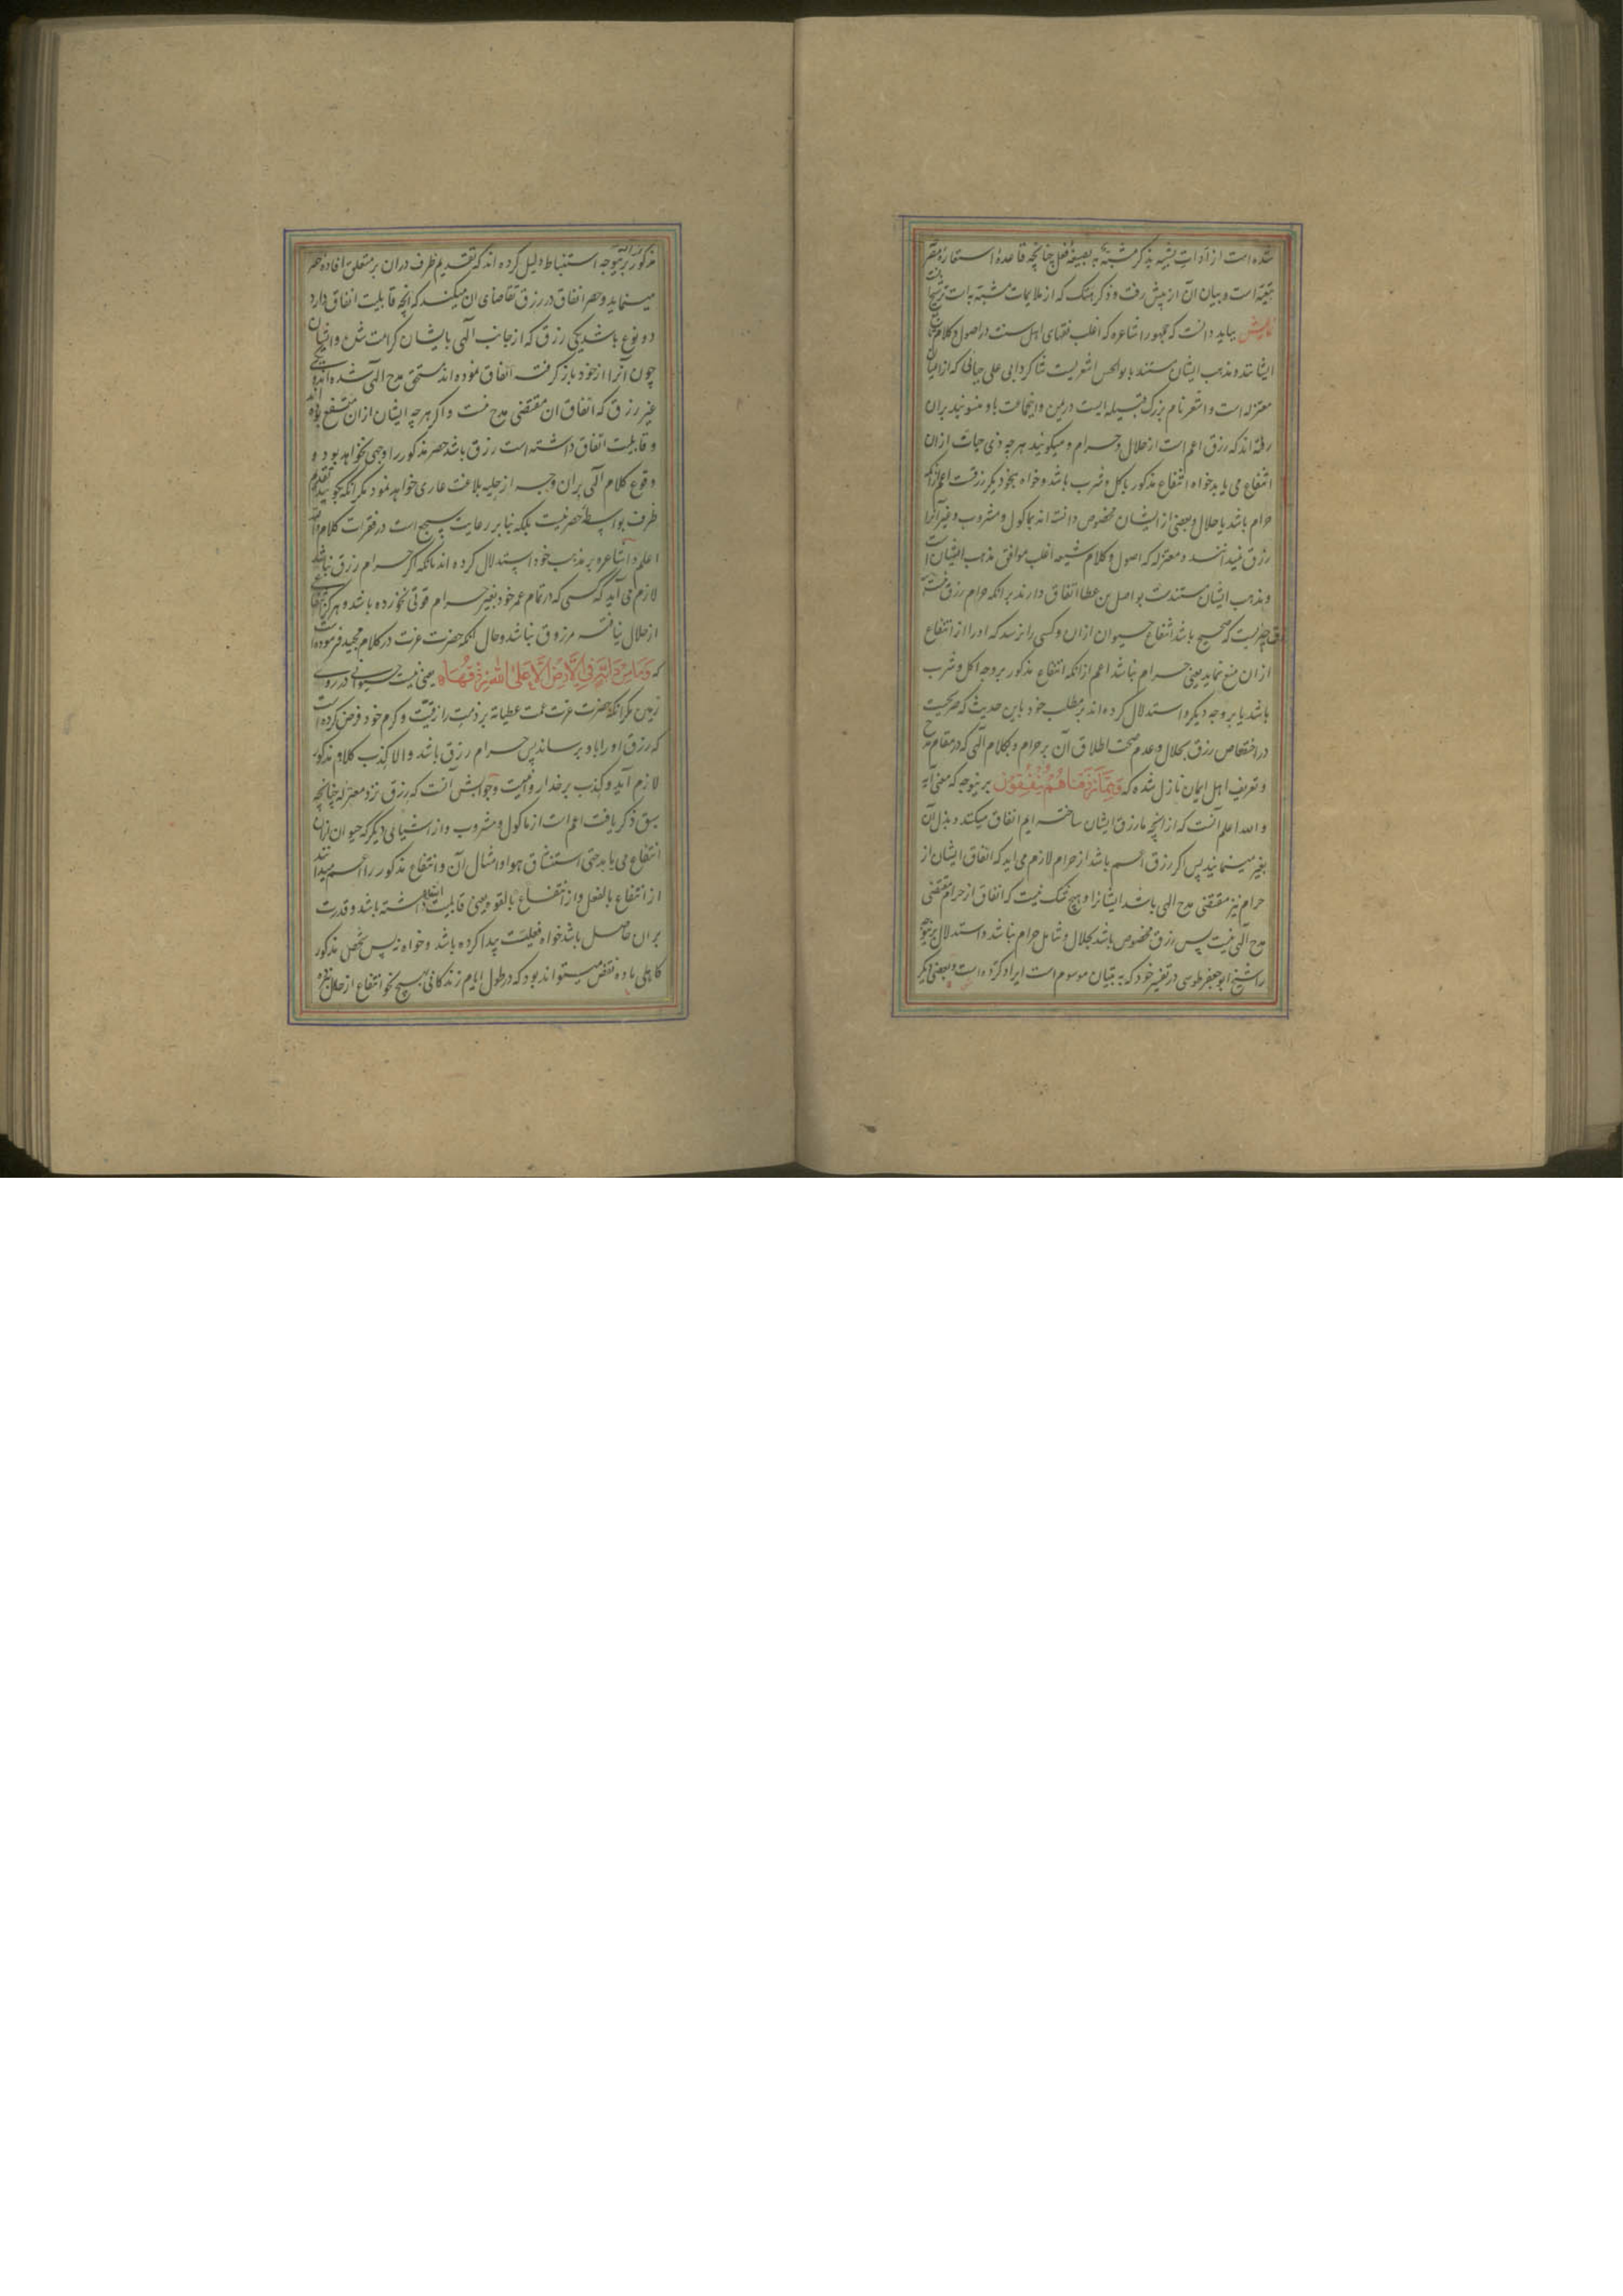 شده است از ادات تشبیه بذکر مشبه به بصیغه فعل چنانچه قاعده استعاره مقرر
تبعیه است و بیان آن از پیش رفت و ذکر هتک که از ملایمات مشبه به است ترشیح
نمایش بباید دانست که جمهور اشاعره که اغلب فقهای اهل سنت در اصول و کلام تابع
ایشانند و مذهب ایشان مستند بابوالحسن اشعریست شاکرد ابی علی جبائی که از اعیان
معتزله است و اشعر نام بزرک قبیله ایست در یمن و اینجماعت باو منسوبند بران
رفته اند که رزق اعم است از حلال و حرام و میکویند هرچه ذی حیات ازان
انتفاع می یابد خواه انتفاع مذکور باکل و شرب باشد و خواه بنحو دیکر رزقست اعم ازانکه
حرام باشد یا حلال و بعضی از ایشان مخصوص دانسته اند بماکول و مشروب و غیر آنرا
رزق نمیدانند و معتزله که اصول و کلام شیعه اغلب موافق مذهب ایشان است
و مذهب ایشان مستندست بواصل بن عطا اتفاق دارند برانکه حرام رزق نیست
رزق چیزیست که صحیح باشد انتفاع حیوان ازان و کسی را نرسد که او را از انتفاع
ازان منع نماید یعنی حرام نباشد اعم ازانکه انتفاع مذکور بر وجه اکل و شرب
باشد یا بر وجه دیکر و استدلال کرده اند بر مطلب خود باین حدیث که صریحست
در اختصاص رزق بحلال و عدم صحت اطلاق آن بر حرام و بکلام الهی که در مقام مدح
و تعریف اهل ایمان نازل شده که وَمِمَّا رَزَقْنَاهُمْ يُنْفِقُونَ برینوجه که معنی آیه
و الله اعلم آنست که از انچه ما رزق ایشان ساخته ایم انفاق میکنند و بذل آن
بغیر مینمایند پس اکر رزق اعم باشد از حرام لازم می اید که انفاق ایشان از
حرام نیز مقتضی مدح الهی باشد ایشانرا و هیچ شک نیست که انفاق از حرام مقتضی
مدح الهی نیست پس رزق مخصوص باشد بحلال و شامل حرام نباشد و استدلال برینوجه
را شیخ ابو جعفر طوسی در تفسیر خود که به تبیان موسوم است ایراد کرده است و بعضی دیکر
مذکور برینوجه استنباط دلیل کرده اند که تقدیم ظرف دران بر متعلق افاده حصر
مینماید و حصر انفاق در رزق تقاضای ان میکند که انچه قابلیت انفاق دارد
دو نوع باشد یکی رزق که از جانب الهی بایشان کرامت شده و ایشان
چون آنرا از خود باز کرفته انفاق نموده اند مستحق مدح الهی شده اند و
غیر رزق که انفاق ان مقتضی مدح نیست و اکر هرچه ایشان ازان منتفع بوده اند
و قابلیت انفاق داشته است رزق باشد حصر مذکور را وجهی نخواهد بود و
وقوع کلام الهی بران وجه از حلیه بلاغت عاری خواهد نمود مکر انکه بکویند تقدیم
ظرف بواسطه حصر نیست بلکه بنابر رعایت سجع است در فقرات کلام و الله
اعلم و اشاعره بر مذهب خود استدلال کرده اند بانکه اکر حرام رزق نباشد
لازم می آید که کسی که در تمام عمر خود بغیر حرام قوتی نخورده باشد و هرکز انتفاعی
از حلال نیافته مرزوق نباشد و حال انکه حضرت عزت در کلام مجید فرموده است
که وَمَا مِنْ دَابَّةٍ فِي الْأَرْضِ إِلَّا عَلَى اللَّهِ رِزْقُهَا یعنی نیست حیوانی در روی
زمین مکر انکه حضرت عزت عمت عطیاته بر ذمت رازقیت و کرم خود فرض کرده است
که رزق او را باو برساند پس حرام رزق باشد و الا کذب کلام مذکور
لازم آید و کذب بر خدا روا نیست و جوابش آنست که رزق نزد معتزله چنانچه
سبق ذکر یافت اعم است از ماکول و مشروب و از اشیای دیکر که حیوان ازان
انتفاع می یابد حتی استنشاق هوا و امثال آن و انتفاع مذکور را اعم میدانند
از انتفاع بالفعل و از انتفاع بالقوه یعنی قابلیت انتفاع داشته باشد و قدرت
بران حاصل باشد خواه فعلیت پیدا کرده باشد و خواه نه پس شخص مذکور
کاهی ماده نقض میتواند بود که در طول ایام زندکانی بهیچ نحو انتفاع از حلال نبرده